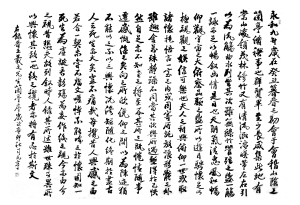 永和九年歲在癸丑暮春之初會于會稽山陰之
蘭亭脩禊事也群賢畢至少長咸集此地有
崇山峻領茂林脩竹又有清流激湍暎帶左右引
以為流觴曲水列坐其次雖無絲竹管弦之盛一觴
一詠亦足以暢敘幽情是日也天朗氣清惠風和暢
仰觀宇宙之大俯察品類之盛所以遊目騁懷足以
極視聽之娛信可樂也夫人之相與俯仰一世或取
諸懷抱悟言一室之內或因寄所託放浪形骸之外
雖趣舍萬殊靜躁不同當其欣於所遇暫得於己快
然自足不知老之將至及其所之既倦情隨事
遷感慨係之矣向之所欣俛仰之間以為陳迹猶
不能不以之興懷況脩短隨化終期於盡古
人云死生亦大矣豈不痛哉每攬昔人興感之由
若合一契未嘗不臨文嗟悼不能喻之於懷固知一
死生為虛誕齊彭殤為妄作後之視今亦由今之
視昔悲夫故列敘時人錄其所述雖世殊事異所
以興懷其致一也後之攬者亦將有感於斯文
右錄晉王羲之先生蘭亭序